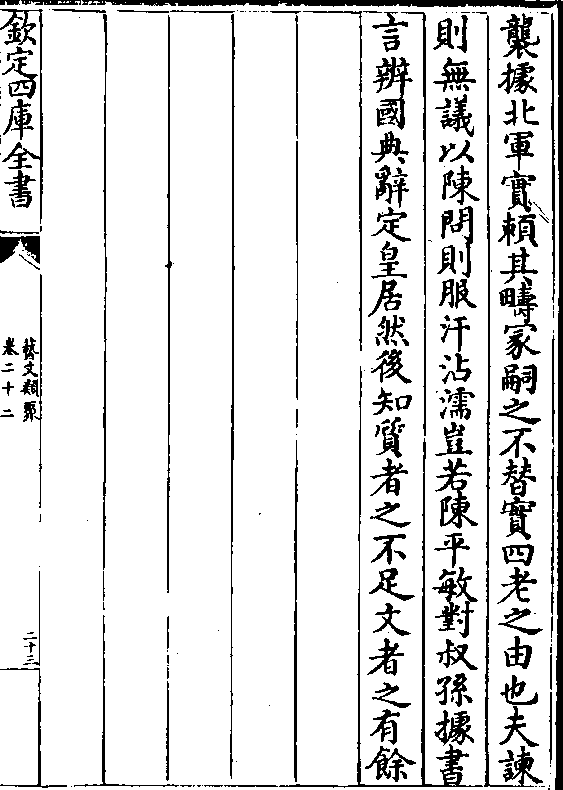 襲據北軍實賴其疇冢嗣之不替實四老之由也夫諫
則無議以陳問則服汗沾濡豈若陳平敏對叔孫據書
言辨國典辭定皇居然後知質者之不足文者之有餘
欽定四庫全書
藝文類聚
卷二十二
二十三